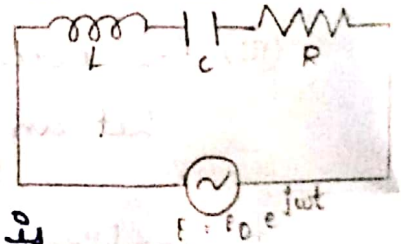 L C R
E = E₀ e^jωt